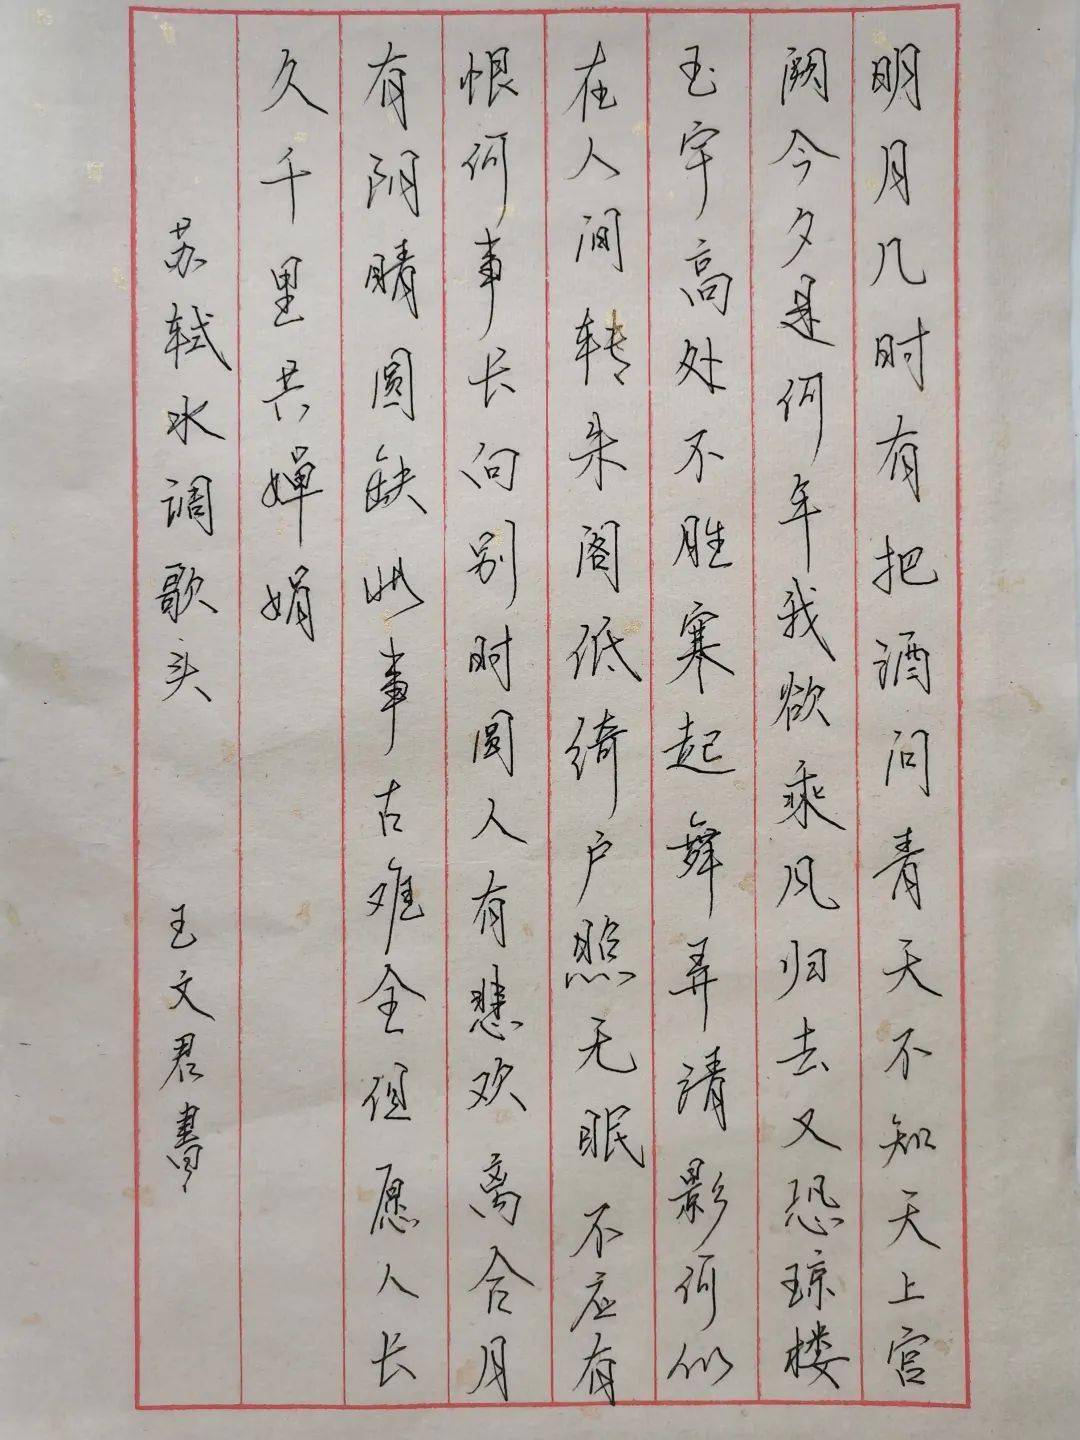 明月几时有把酒问青天不知天上宫
阙今夕是何年我欲乘风归去又恐琼楼
玉宇高处不胜寒起舞弄清影何似
在人间转朱阁低绮户照无眠不应有
恨何事长向别时圆人有悲欢离合月
有阴晴圆缺此事古难全但愿人长
久千里共婵娟
苏轼水调歌头 王文君書